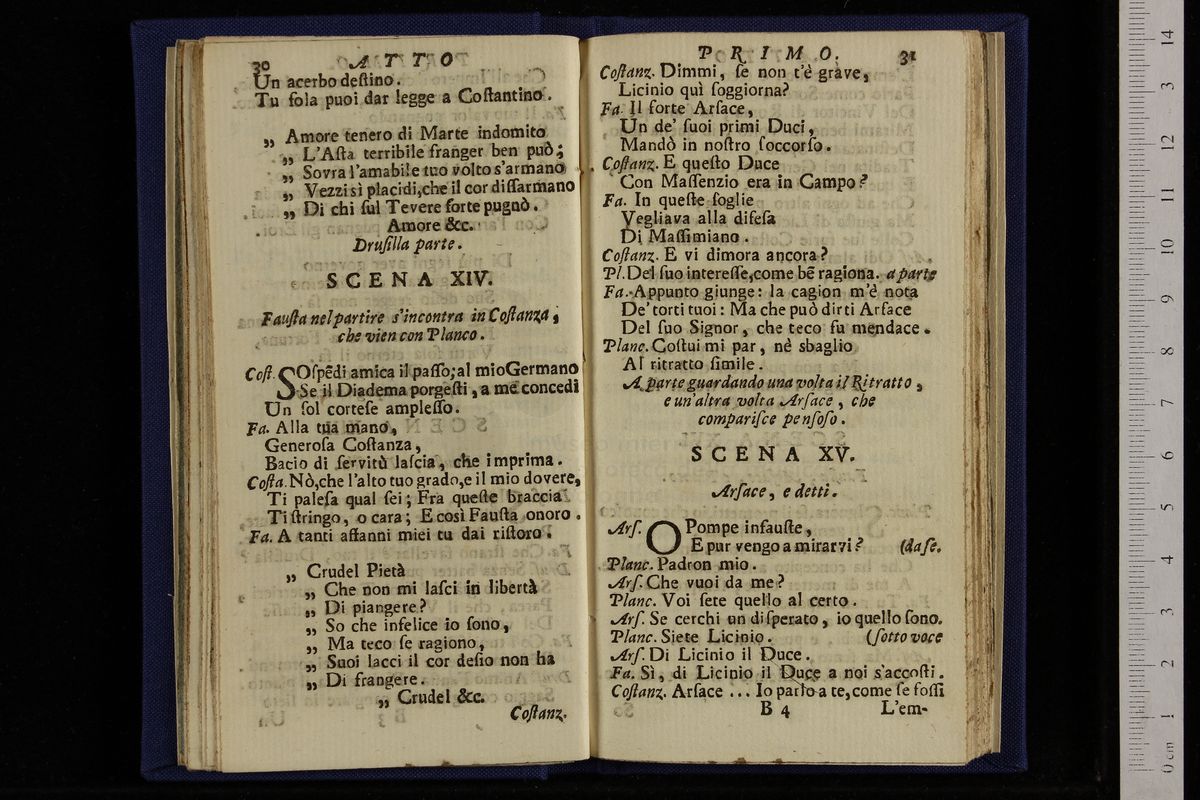 30 ATTO
Un acerbo deſtino.
Tu ſola puoi dar legge a Coſtantino.
„ Amore tenero di Marte indomito
„ L'Aſta terribile franger ben può;
„ Sovra l'amabile tuo volto s'armano
„ Vezzi sì placidi, che il cor diſſarmano
„ Di chi ſul Tevere forte pugnò.
Amore &c.
Druſilla parte.
SCENA XIV.
Fauſta nel partire s'incontra in Coſtanza,
che vien con Planco.
Coſt. SOſpẽdi amica il paſſo; al mio Germano
Se il Diadema porgeſti, a me concedi
Un ſol corteſe ampleſſo.
Fa. Alla tua mano,
Generoſa Coſtanza,
Bacio di ſervitù laſcia, che imprima.
Coſta. Nò, che l'alto tuo grado, e il mio dovere,
Ti paleſa qual ſei; Fra queſte braccia
Ti ſtringo, o cara; E così Fauſta onoro.
Fa. A tanti affanni miei tu dai riſtoro.
„ Crudel Pietà
„ Che non mi laſci in libertà
„ Di piangere?
„ So che infelice io ſono,
„ Ma teco ſe ragiono,
„ Suoi lacci il cor deſio non ha
„ Di frangere.
„ Crudel &c.
Coſtanz.
PRIMO. 31
Coſtanz. Dimmi, ſe non t'è grave,
Licinio quì ſoggiorna?
Fa. Il forte Arſace,
Un de' ſuoi primi Duci,
Mandò in noſtro ſoccorſo.
Coſtanz. E queſto Duce
Con Maſſenzio era in Campo?
Fa. In queſte ſoglie
Vegliava alla difeſa
Di Maſſimiano.
Coſtanz. E vi dimora ancora?
Pl. Del ſuo intereſſe, come bẽ ragiona. a parte
Fa. Appunto giunge: la cagion m'è nota
De' torti tuoi: Ma che può dirti Arface
Del ſuo Signor, che teco fu mendace.
Planc. Coſtui mi par, nè sbaglio
Al ritratto ſimile.
A parte guardando una volta il Ritratto,
e un'altra volta Arſace, che
compariſce penſoſo.
SCENA XV.
Arſace, e detti.
Arſ. O Pompe infauſte,
E pur vengo a mirarvi? (da ſe.
Planc. Padron mio.
Arſ. Che vuoi da me?
Planc. Voi ſete quello al certo.
Arſ. Se cerchi un diſperato, io quello ſono.
Planc. Siete Licinio. (ſotto voce
Arſ. Di Licinio il Duce.
Fa. Sì, di Licinio il Duce a noi s'accoſti.
Coſtanz. Arſace ... Io parlo a te, come ſe foſſi
B 4 L'em-
0 cm 1 2 3 4 5 6 7 8 9 10 11 12 3 14